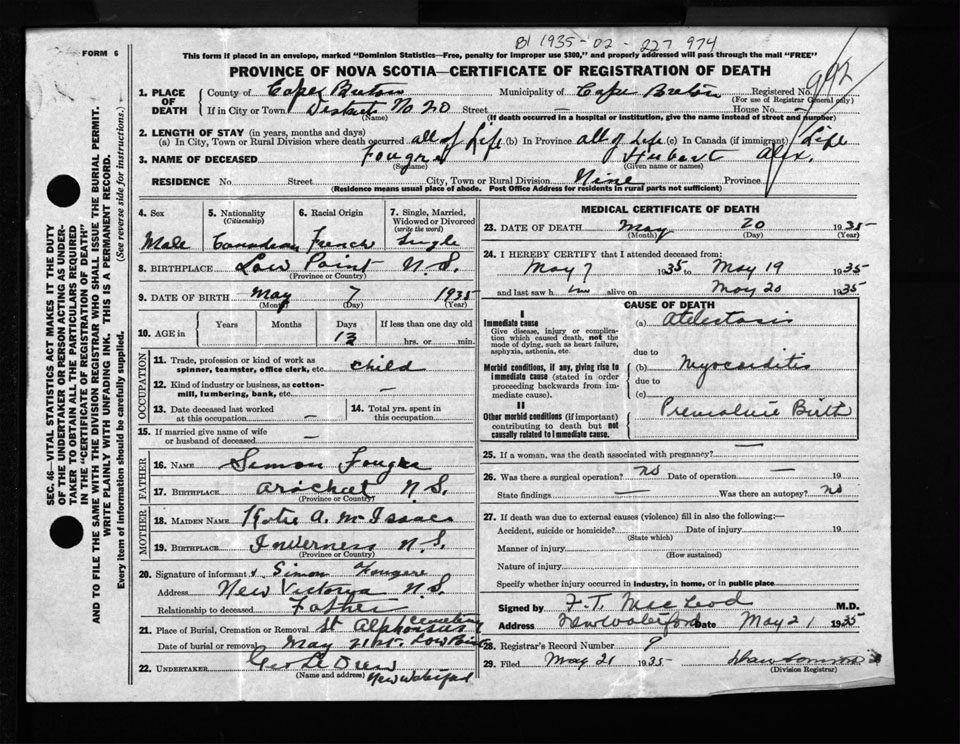 B1 1935-02-227 974
FORM 6
This form if placed in an envelope, marked "Dominion Statistics—Free, penalty for improper use $300," and properly addressed will pass through the mail "FREE"
PROVINCE OF NOVA SCOTIA—CERTIFICATE OF REGISTRATION OF DEATH
992
1. PLACE OF DEATH County of Cape Breton Municipality of Cape Breton Registered No.
(For use of Registrar General only)
If in City or Town District No 20 Street — House No.
(Name) (If death occurred in a hospital or institution, give the name instead of street and number)
2. LENGTH OF STAY (in years, months and days)
(a) In City, Town or Rural Division where death occurred all of Life (b) In Province all of Life (c) In Canada (if immigrant) Life
3. NAME OF DECEASED Fougre Hubert Alex.
(Surname) (Given name or names)
RESIDENCE No. Street City, Town or Rural Division Province
(Residence means usual place of abode. Post Office Address for residents in rural parts not sufficient)
4. Sex 5. Nationality (Citizenship) 6. Racial Origin 7. Single, Married, Widowed or Divorced (write the word)
Male Canadian French Single
8. BIRTHPLACE Low Point N.S.
(Province or Country)
9. DATE OF BIRTH May 7 1935
(Month) (Day) (Year)
10. AGE in Years Months Days If less than one day old
13 hrs. or min.
OCCUPATION
11. Trade, profession or kind of work as spinner, teamster, office clerk, etc. child
12. Kind of industry or business, as cotton-mill, lumbering, bank, etc. —
13. Date deceased last worked at this occupation — 14. Total yrs. spent in this occupation —
15. If married give name of wife or husband of deceased —
FATHER
16. NAME Simon Fougre
17. BIRTHPLACE Arichat N.S.
(Province or Country)
MOTHER
18. MAIDEN NAME Katie A. McIsaac
19. BIRTHPLACE Inverness N.S.
(Province or Country)
20. Signature of informant x Simon Fougere
Address New Victoria N.S.
Relationship to deceased Father
21. Place of Burial, Cremation or Removal St Alphonsus Cemetery
Date of burial or removal May 21st. Low Point
22. UNDERTAKER Geo Le Drew
(Name and address) New Waterford
MEDICAL CERTIFICATE OF DEATH
23. DATE OF DEATH May 20 1935
(Month) (Day) (Year)
24. I HEREBY CERTIFY that I attended deceased from:
May 7 1935 to May 19 1935
and last saw him alive on May 20 1935
CAUSE OF DEATH
I
Immediate cause (a) Atelectasis
Give disease, injury or complication which caused death, not the mode of dying, such as heart failure, asphyxia, asthenia, etc.
due to
Morbid conditions, if any, giving rise to immediate cause (stated in order proceeding backwards from immediate cause).
(b) Myocarditis
due to
(c)
II
Other morbid conditions (if important) contributing to death but not causally related to immediate cause.
Premature Birth
25. If a woman, was the death associated with pregnancy? —
26. Was there a surgical operation? no Date of operation — 19
State findings — Was there an autopsy? no
27. If death was due to external causes (violence) fill in also the following:—
Accident, suicide or homicide? Date of injury 19
(State which)
Manner of injury
(How sustained)
Nature of injury
Specify whether injury occurred in industry, in home, or in public place
Signed by F. T. McLeod M.D.
Address New Waterford Date May 21 1935
28. Registrar's Record Number 9
29. Filed May 21 1935
(Division Registrar)
SEC. 46—VITAL STATISTICS ACT MAKES IT THE DUTY
OF THE UNDERTAKER OR PERSON ACTING AS UNDER-
TAKER TO OBTAIN ALL THE PARTICULARS REQUIRED
IN THE "CERTIFICATE OF REGISTRATION OF DEATH"
AND TO FILE THE SAME WITH THE DIVISION REGISTRAR WHO SHALL ISSUE THE BURIAL PERMIT.
WRITE PLAINLY WITH UNFADING INK. THIS IS A PERMANENT RECORD.
Every item of information should be carefully supplied. (See reverse side for instructions.)